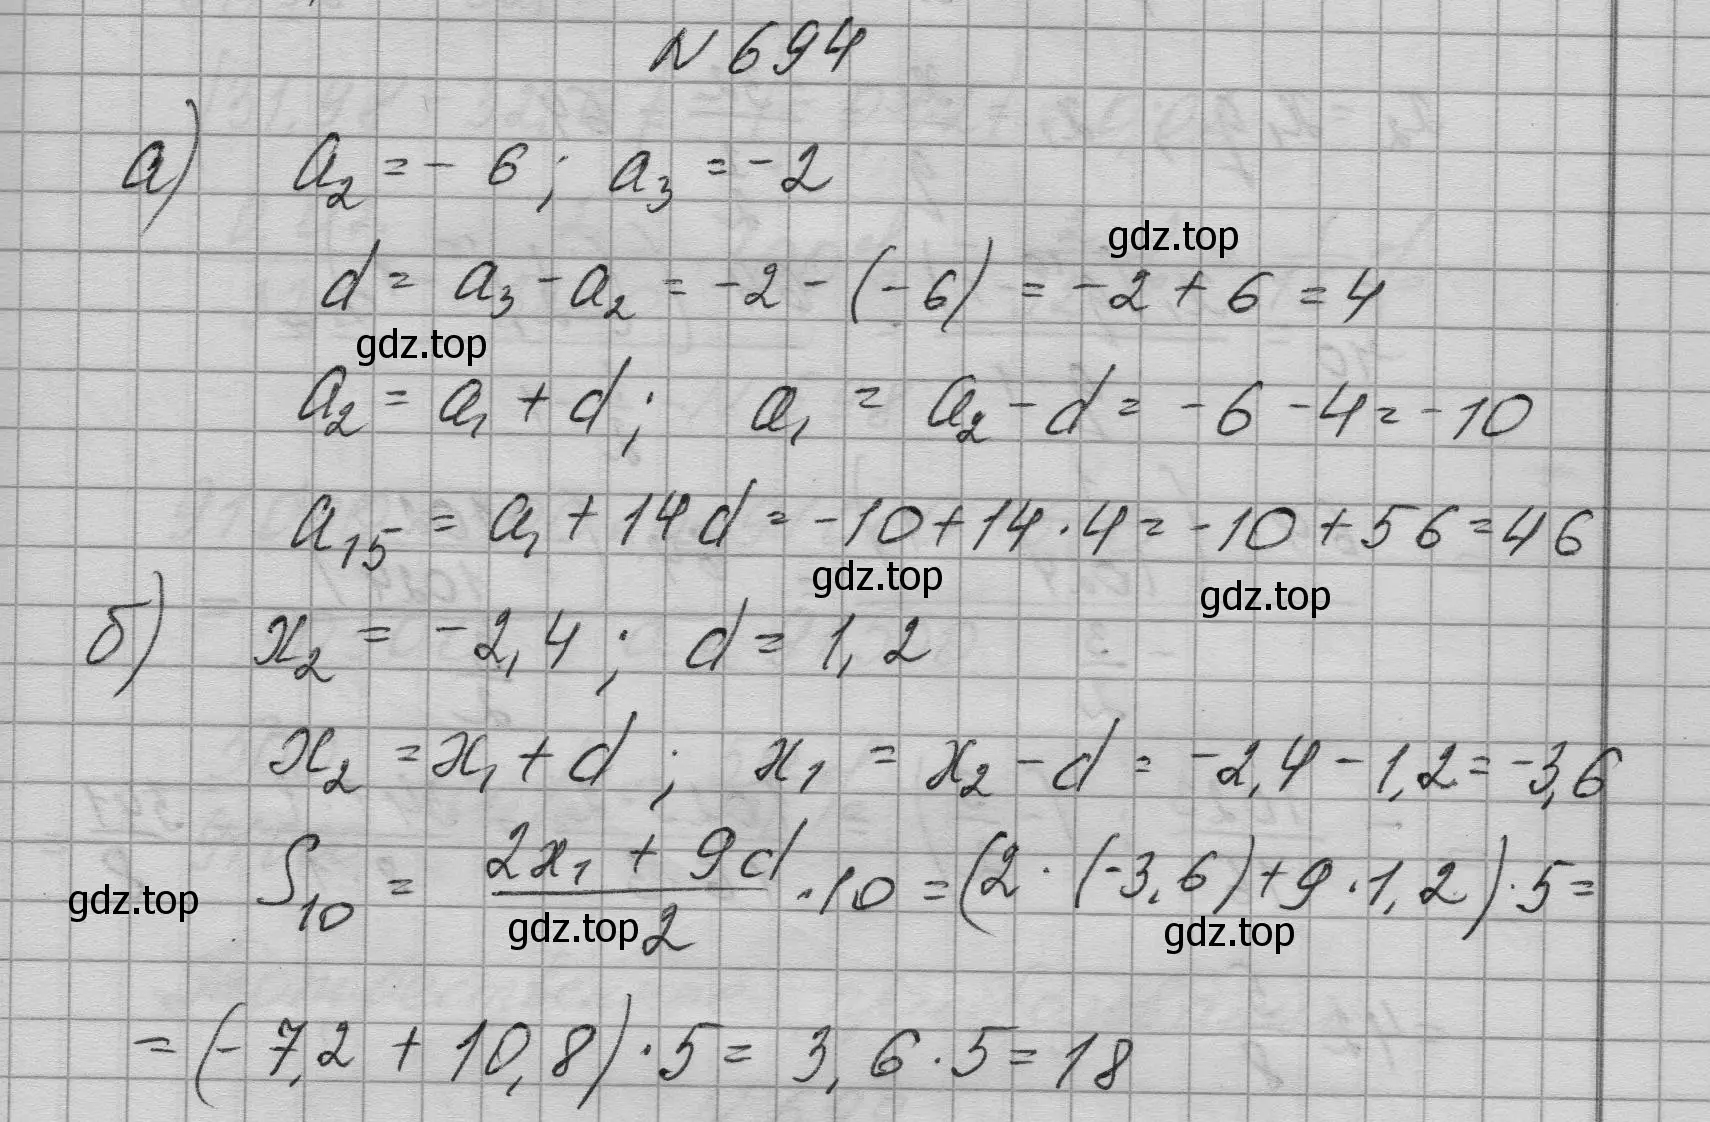 N 694
а) a₂ = - 6; a₃ = -2
gdz.top
d = a₃ - a₂ = -2 - (-6) = -2 + 6 = 4
gdz.top
a₂ = a₁ + d; a₁ = a₂ - d = -6 - 4 = -10
a₁₅ = a₁ + 14d = -10 + 14 · 4 = -10 + 56 = 46
gdz.top gdz.top
б) x₂ = -2,4; d = 1,2
x₂ = x₁ + d; x₁ = x₂ - d = -2,4 - 1,2 = -3,6
S₁₀ = (2x₁ + 9d)/2 · 10 = (2 · (-3,6) + 9 · 1,2) · 5 =
gdz.top gdz.top gdz.top
= (-7,2 + 10,8) · 5 = 3,6 · 5 = 18